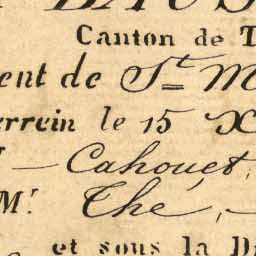 Canton de T
ent de St. M
errein le 15 X
— Cahouet,
Mr. The, —
et sous la D